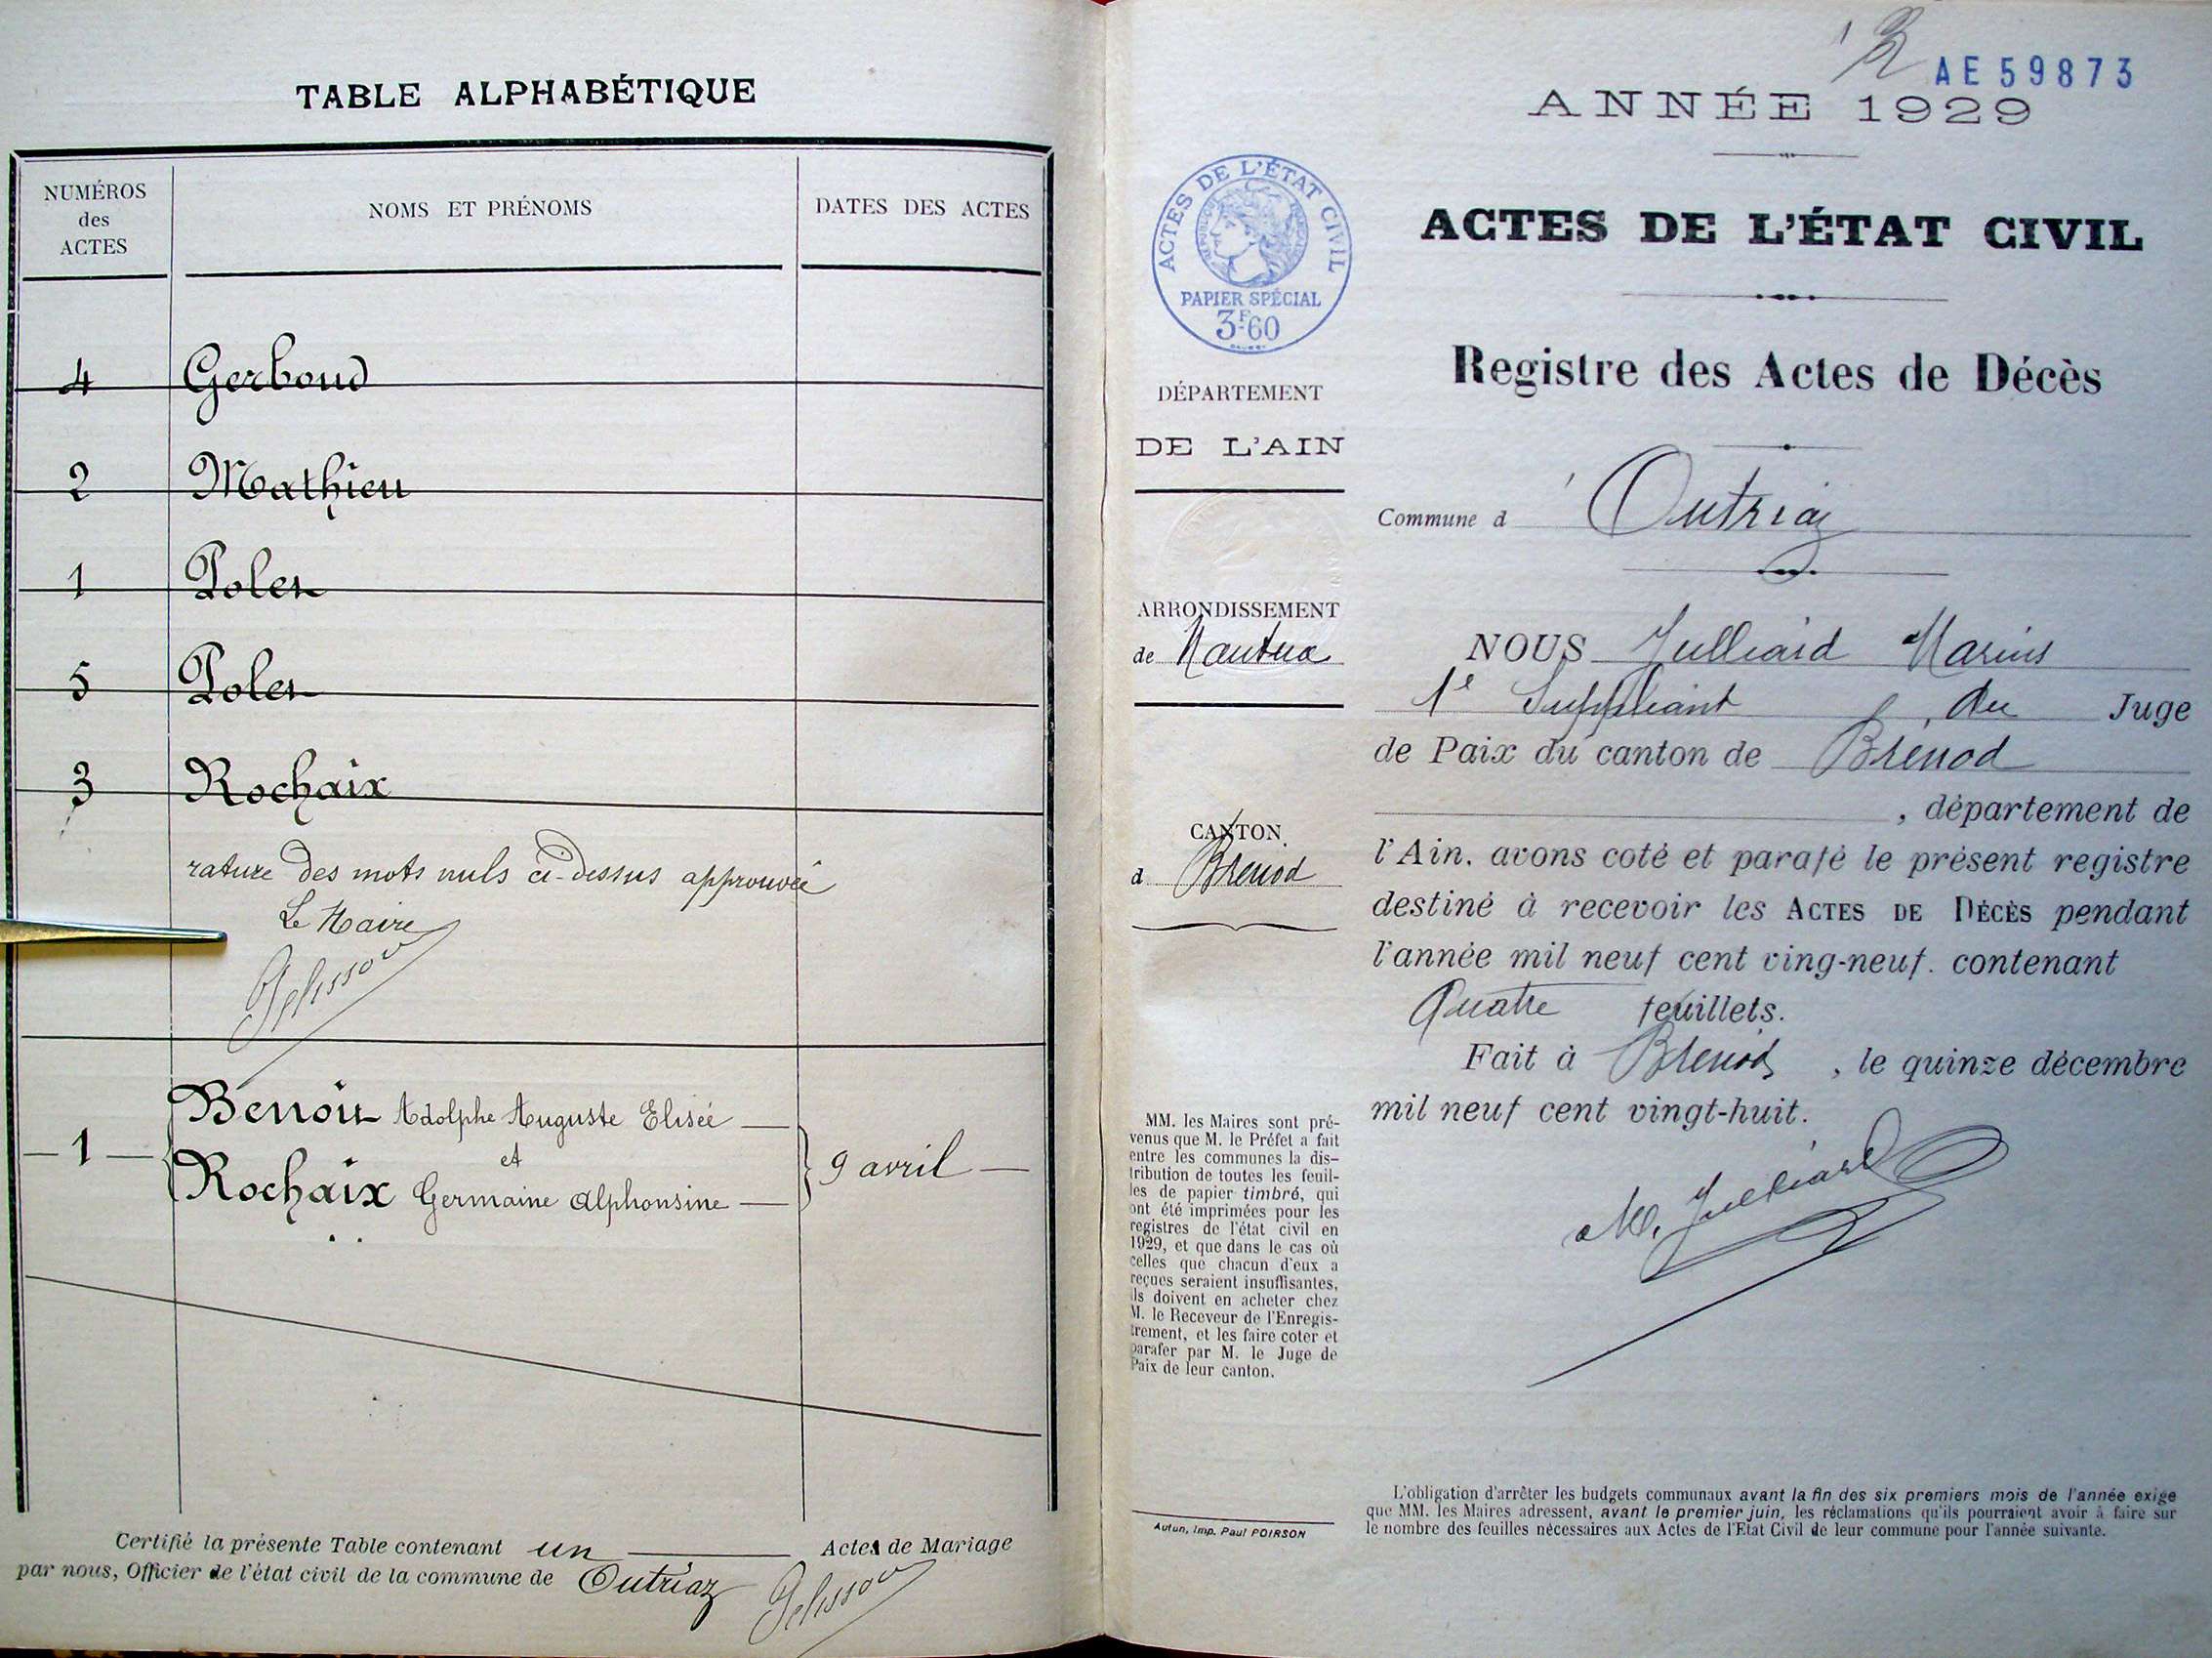 TABLE ALPHABÉTIQUE
NUMÉROS
des
ACTES
NOMS ET PRÉNOMS
DATES DES ACTES
4 Gerboud
2 Mathieu
1 Polen
5 Polen
3 Rochaix
rature des mots nuls ci-dessus approuvée
Le Maire
Benoit Adolphe Auguste Elisée
1 et 9 avril
Rochaix Germaine Alphonsine
Certifié la présente Table contenant un Actes de Mariage
par nous, Officier de l'état civil de la commune de Outriaz
AE59873
ANNÉE 1929
ACTES DE L'ÉTAT CIVIL
RÉPUBLIQUE FRANÇAISE
PAPIER SPÉCIAL
3F60
DÉPARTEMENT
DE L'AIN
ARRONDISSEMENT
de Nantua
CANTON
d Brenod
MM. les Maires sont pré-
venus que M. le Préfet a fait
entre les communes la dis-
tribution de toutes les feuil-
les de papier timbré, qui
ont été imprimées pour les
registres de l'état civil en
1929, et que dans le cas où
celles que chacun d'eux a
reçues seraient insuffisantes,
ils doivent en acheter chez
M. le Receveur de l'Enregis-
trement, et les faire coter et
parafer par M. le Juge de
Paix de leur canton.
Autun, Imp. Paul POIRSON
ACTES DE L'ÉTAT CIVIL
Registre des Actes de Décès
Commune d Outriaz
NOUS Julliard Marius
1e Suppléant, du Juge
de Paix du canton de Brénod
, département de
l'Ain, avons coté et parafé le présent registre
destiné à recevoir les ACTES DE DÉCÈS pendant
l'année mil neuf cent ving-neuf. contenant
Quatre feuillets.
Fait à Brenod, le quinze décembre
mil neuf cent vingt-huit.
M. Julliard
L'obligation d'arrêter les budgets communaux avant la fin des six premiers mois de l'année exige
que MM. les Maires adressent, avant le premier juin, les réclamations qu'ils pourraient avoir à faire sur
le nombre des feuilles nécessaires aux Actes de l'Etat Civil de leur commune pour l'année suivante.